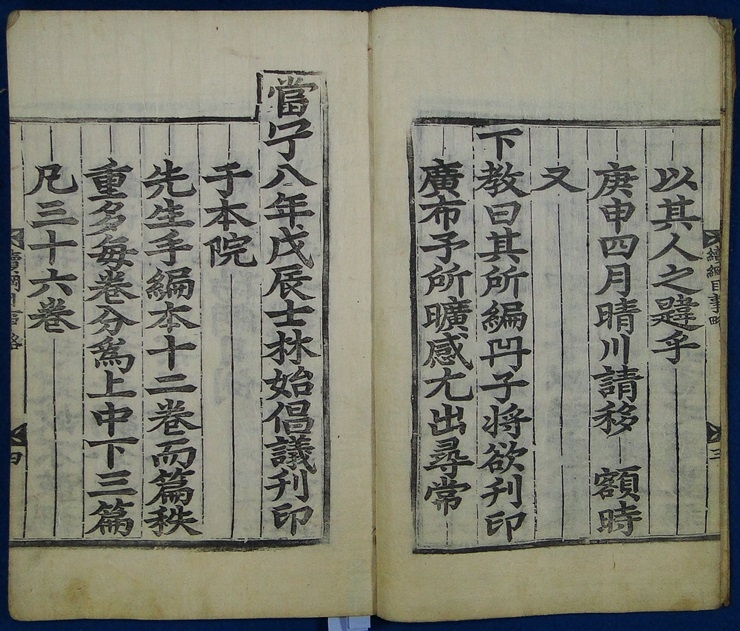 續綱目事略 三
以其人之韙乎
庚申四月晴川請移 額時
又
下教曰其所編冊子將欲刊印
廣布予所曠感尤出尋常
當宁八年戊辰士林始倡議刊印
于本院
先生手編本十二卷而篇秩
重多每卷分爲上中下三篇
凡三十六卷
續綱目事略 四